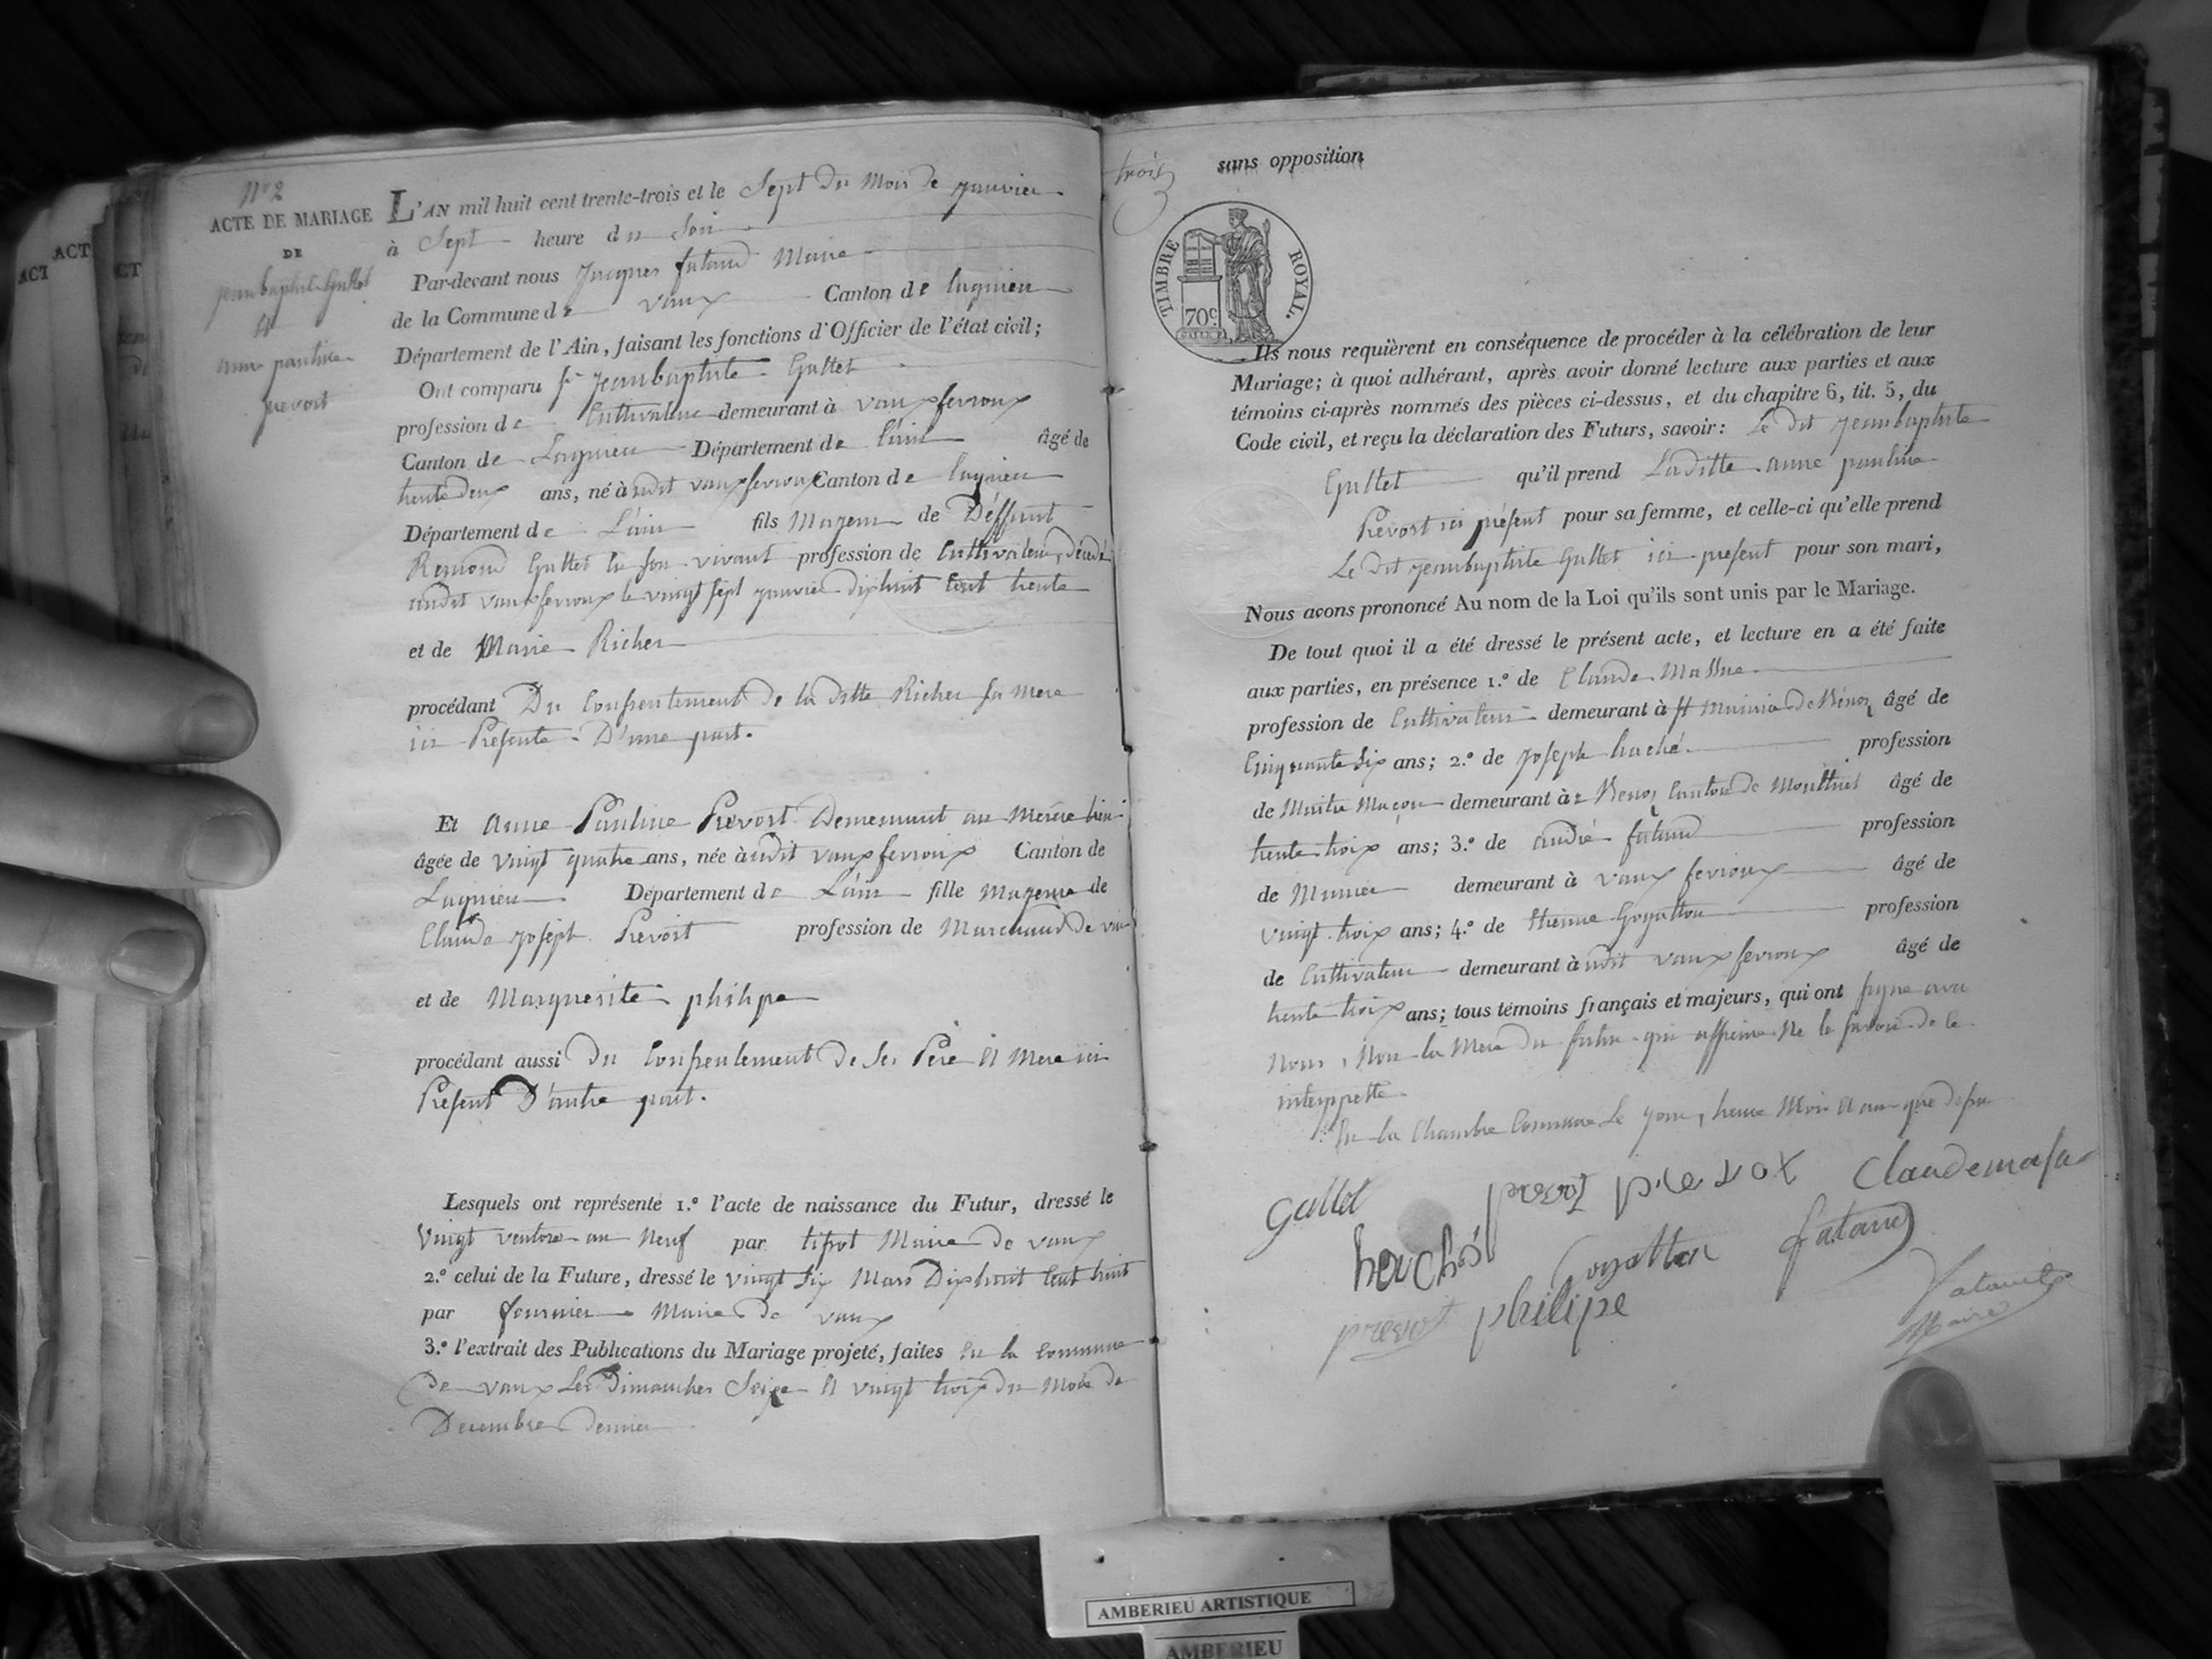 N° 2
ACTE DE MARIAGE
DE
Jean baptiste Guttet
et
anne pauline
prevost
L'AN mil huit cent trente-trois et le Sept du Mois de janvier
à Sept heure du Soir
Par-devant nous Jacques futaud Maire
de la Commune de vaux Canton de lagnieu
Département de l'Ain, faisant les fonctions d'Officier de l'état civil;
Ont comparu Sr jeanbaptiste Guttet
profession de Cultivateur demeurant à vauxfevroux
Canton de Lagnieu Département de l'ain âgé de
trente deux ans, né audit vauxfevroux Canton de lagnieu
Département de L'ain fils Mageur de Déffunt
Remond Guttet en son vivant profession de Cultivateur, décédé
audit vauxfevroux le vingt sept janvier dixhuit cent trente
et de Marie Richer
procédant Du Consentement de la ditte Richer sa mere
ici Présente D'une part.
Et anne Pauline Prevost Demeurant au Meme lieu
âgée de vingt quatre ans, née audit vauxfevroux Canton de
Lagnieu Département de L'ain fille mageure de
Claude joseph Prevost profession de Marchand de vin
et de Marguerite philipe
procédant aussi du Consentement de ses Pere et Mere ici
Présent D'autre part.
Lesquels ont représenté 1.° l'acte de naissance du Futur, dressé le
Vingt ventose an Neuf par tissot Maire de vaux
2.° celui de la Future, dressé le vingt six Mars Dixhuit Cent huit
par fournier Maire de vaux
3.° l'extrait des Publications du Mariage projeté, faites en la commune
de vaux Les Dimanches Seize et vingt trois du Mois de
Decembre dernier
trois
sans opposition
TIMBRE ROYAL.
70c.
Ils nous requièrent en conséquence de procéder à la célébration de leur
Mariage; à quoi adhérant, après avoir donné lecture aux parties et aux
témoins ci-après nommés des pièces ci-dessus, et du chapitre 6, tit. 5, du
Code civil, et reçu la déclaration des Futurs, savoir: Le dit jeanbaptiste
Guttet qu'il prend Laditte anne pauline
Prevost ici présent pour sa femme, et celle-ci qu'elle prend
Le dit jeanbaptiste Guttet ici présent pour son mari,
Nous avons prononcé Au nom de la Loi qu'ils sont unis par le Mariage.
De tout quoi il a été dressé le présent acte, et lecture en a été faite
aux parties, en présence 1.° de Claude Massue
profession de Cultivateur demeurant à st Maurice de Bénoz âgé de
Cinquante Six ans; 2.° de joseph haché profession
de Maitre Maçon demeurant à Benoz Canton de Montluel âgé de
trente troix ans; 3.° de andré futaud profession
de Munier demeurant à vaux fevroux âgé de
vingt troix ans; 4.° de Etienne Goyatton profession
de Cultivateur demeurant audit vauxfevroux âgé de
trente troix ans; tous témoins français et majeurs, qui ont signé avec
Nous, Non la Mere du futur qui affirme Ne le savoir de ce
interppetté
En la Chambre Commune Le jour, heure Mois et an que dessus
Guttet prevost prevox Claudemasu
houché Goyatton fataud
prevost philipe
fataud
Maire
ACT
ACT
CT
AMBERIEU ARTISTIQUE
AMBERIEU